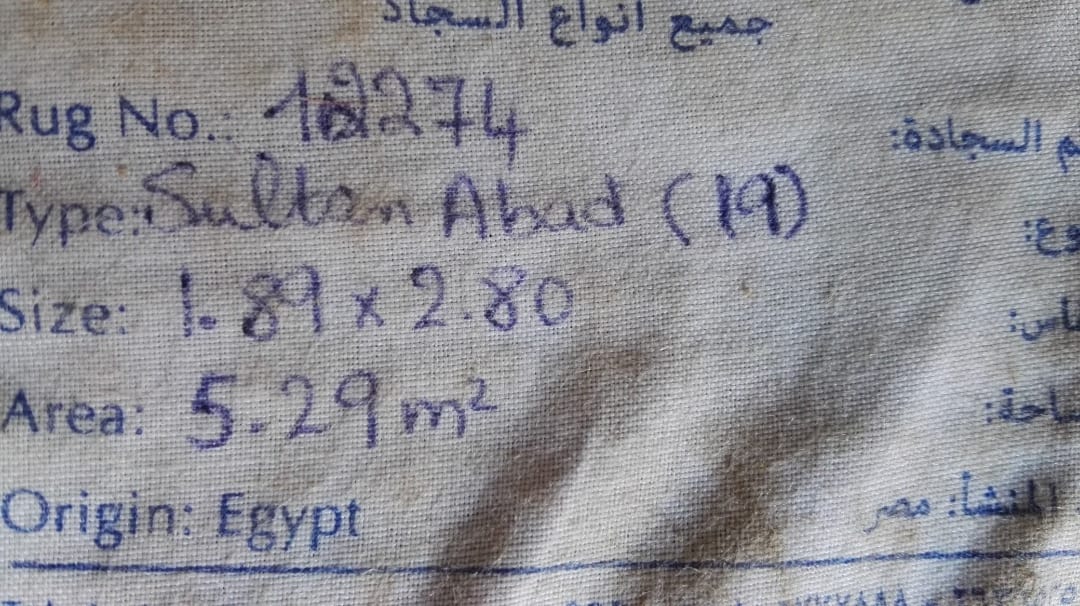 جميع انواع السجاد
Rug No.: 12274 السجادة:
Type: Sultan Abad (19)
Size: 1.89 x 2.80
Area: 5.29 m²
Origin: Egypt المنشأ: مصر